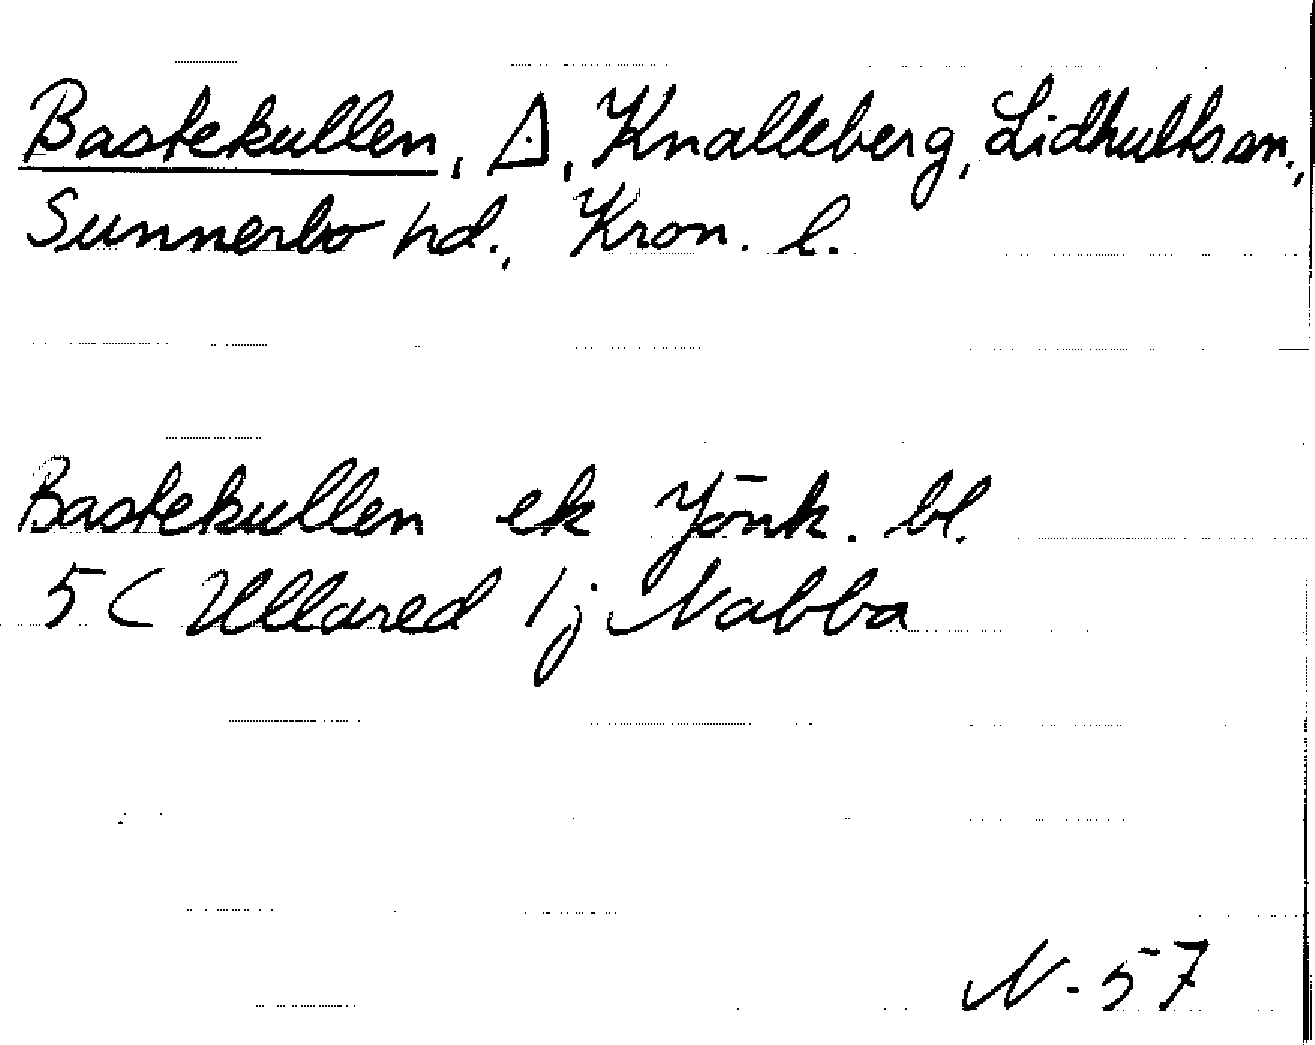 Bastekullen, △, Knalleberg, Lidhults sn.,
Sunnerbo hd., Kron. l.
Bastekullen ek Jönk. bl.
5C Ullared 1j Nabba
N-57